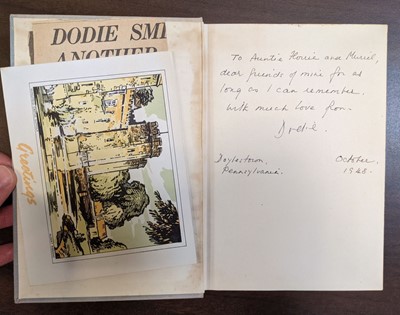 DODIE SMI
ANOTHER
Greetings
To Auntie Florrie and Muriel,
dear friends of mine for as
long as I can remember.
With much love from
Dodie.
Doylestown. October.
Pennsylvania.